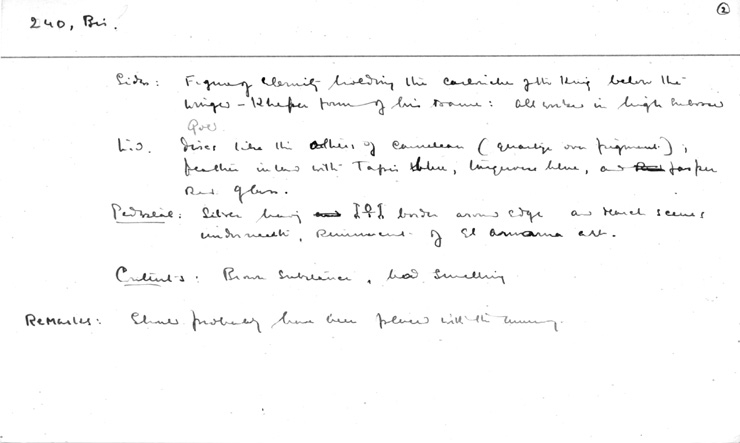 ②
240, Bis.
Sides: Figure of Eternity holding the cartouche of the King below the
winged-Kheper form of his name: all worked in high embossed
Gold
Lid. discs like the others of carnelean (quartz over pigment);
feathers inlaid with Lapis blue, turquoise blue, and jasper
Red glass.
Pedestal: Silver having border around edge and marsh scenes
underneath, Reminiscent of El Amarna art.
Contents: Brown Substance, bad Smelling
Remarks: Should probably have been placed with the mummy.